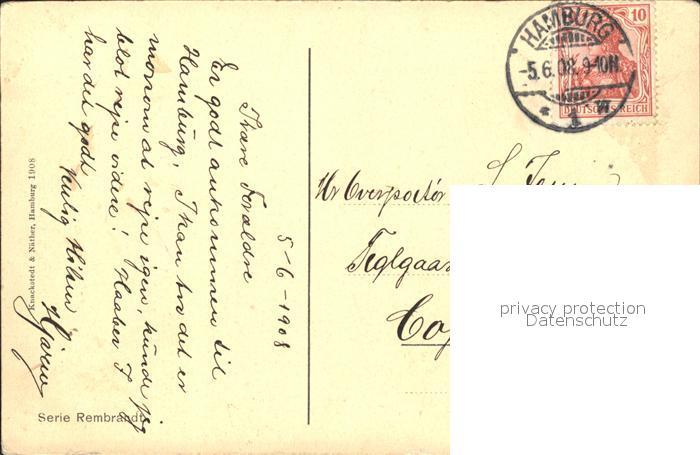 5-6-1908
Kære Forældre
Er godt ankommen til
Hamburg, I kan tro det er
morsom at rejse igen, kunde jeg
blot rejse videre! Haaber I
har det godt
Venlig Hilsen
HAMBURG
-5.6.08.9-10N
* 1 n
10
DEUTSCHES REICH
Hr Overportør
Teglgaar
Co
privacy protection
Datenschutz
Knackstedt & Näther, Hamburg 1908
Serie Rembrandt